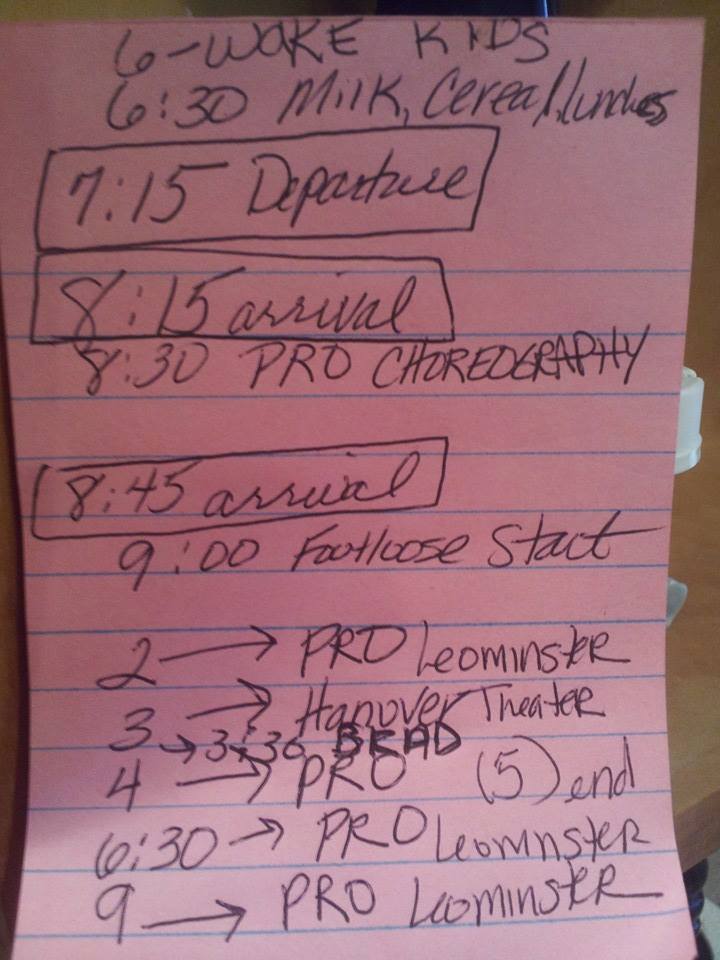 6-WAKE KIDS
6:30 Milk, Cereal, lunches
7:15 Departure
8:15 arrival
8:30 PRO CHOREOGRAPHY
8:45 arrival
9:00 Footloose Start
2 → PRO Leominster
3 → Hanover Theater
→ 3:30 BEAD
4 → PRO (5) end
6:30 → PRO Leominster
9 → PRO Leominster